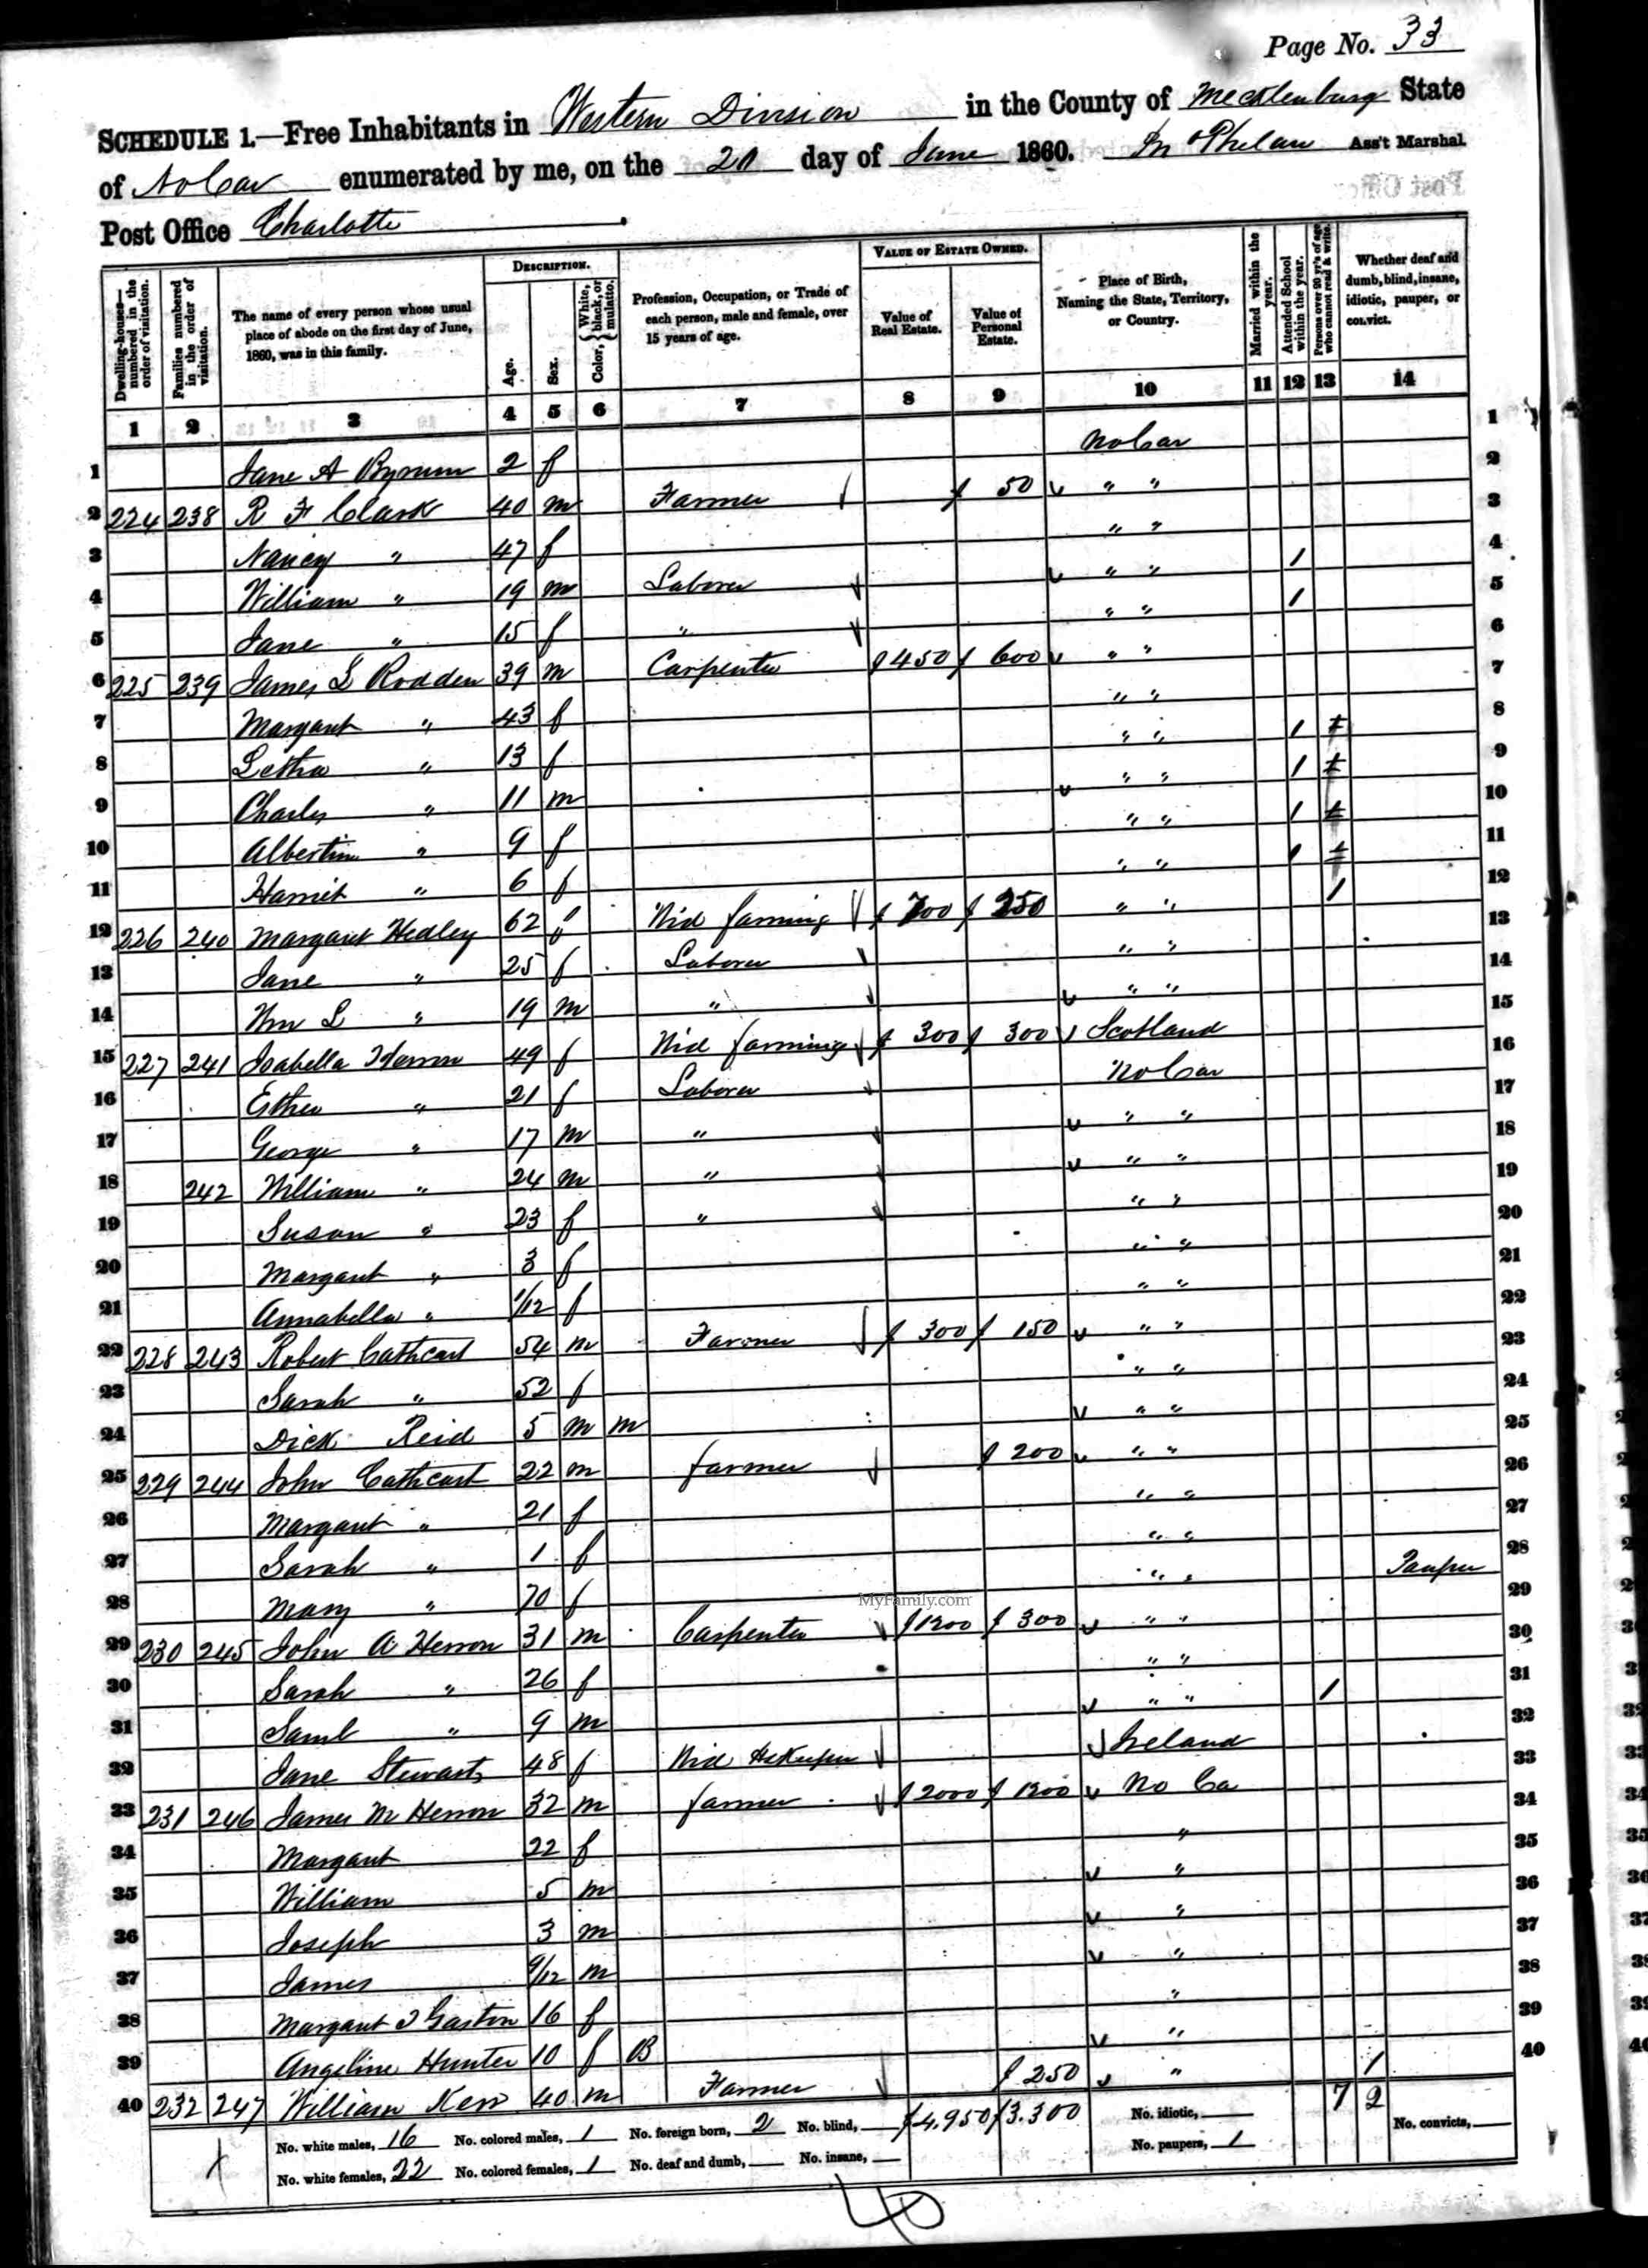 Page No. 33
SCHEDULE 1.—Free Inhabitants in Western Division in the County of Mecklenburg State
of No Car enumerated by me, on the 20 day of June 1860. Phelan Ass't Marshal
Post Office Charlotte
Dwelling-houses—numbered in the order of visitation. Families numbered in the order of visitation. The name of every person whose usual place of abode on the first day of June, 1860, was in this family. DESCRIPTION. Age. Sex. Color, { White, black, or mulatto. Profession, Occupation, or Trade of each person, male and female, over 15 years of age. VALUE OF ESTATE OWNED. Value of Real Estate. Value of Personal Estate. Place of Birth, Naming the State, Territory, or Country. Married within the year. Attended School within the year. Persons over 20 yr's of age who cannot read & write. Whether deaf and dumb, blind, insane, idiotic, pauper, or convict.
1 2 3 4 5 6 7 8 9 10 11 12 13 14
1 Jane A Byrum 2 f No Car 1
2 224 238 R F Clark 40 m Farmer $ 50 " " 2
3 Nancy " 47 f " " 3
4 William " 19 m Laborer " " 1 4
5 Jane " 15 f " " " 1 5
6 225 239 James L Rodden 39 m Carpenter $ 450 $ 600 " " 6
7 Margaret " 43 f " " 7
8 Letha " 13 f " " 1 8
9 Charles " 11 m " " 1 9
10 Albertine " 9 f " " 1 10
11 Harriet " 6 f " " 1 11
12 226 240 Margaret Hedley 62 " Wid farming $ 700 $ 250 " " 1 12
13 Jane " 25 f Laborer " " 13
14 Wm L " 19 m " " " 14
15 227 241 Isabella Herron 49 f Wid farming $ 300 $ 300 Scotland 15
16 Esther " 21 f Laborer No Car 16
17 George " 17 m " " " 17
18 242 William " 24 m " " " 18
19 Susan " 23 f " " " 19
20 Margaret " 3 f " " 20
21 Annabella " 1/12 f " " 21
22 228 243 Robert Cathcart 54 m Farmer $ 300 $ 150 " " 22
23 Sarah " 52 f " " 23
24 Dick Reid 5 m m " " 24
25 229 244 John Cathcart 22 m farmer $ 200 " " 25
26 Margaret " 21 f " " 26
27 Sarah " 1 f " " 27
28 Mary " 70 f " " Pauper 28
29 230 245 John A Herron 31 m Carpenter $ 1200 $ 300 " " 29
30 Sarah " 26 f " " 30
31 Saml " 9 m " " 1 31
32 Jane Stewart 48 f Wid HsKeeper Ireland 32
33 231 246 James M Herron 32 m farmer $ 2000 $ 1200 No Ca 33
34 Margaret 22 f " 34
35 William 5 m " 35
36 Joseph 3 m " 36
37 James 9/12 m " 37
38 Margaret J Gaston 16 f " 38
39 Angeline Hunter 10 f B " 39
40 232 247 William Kerr 40 m Farmer $ 250 " 1 40
No. white males, 16 No. colored males, 1 No. foreign born, 2 No. blind, $4,950 $3.300 No. idiotic, 7 2 No. convicts,
No. white females, 22 No. colored females, 1 No. deaf and dumb, No. insane, No. paupers, 1
40
MyFamily.com